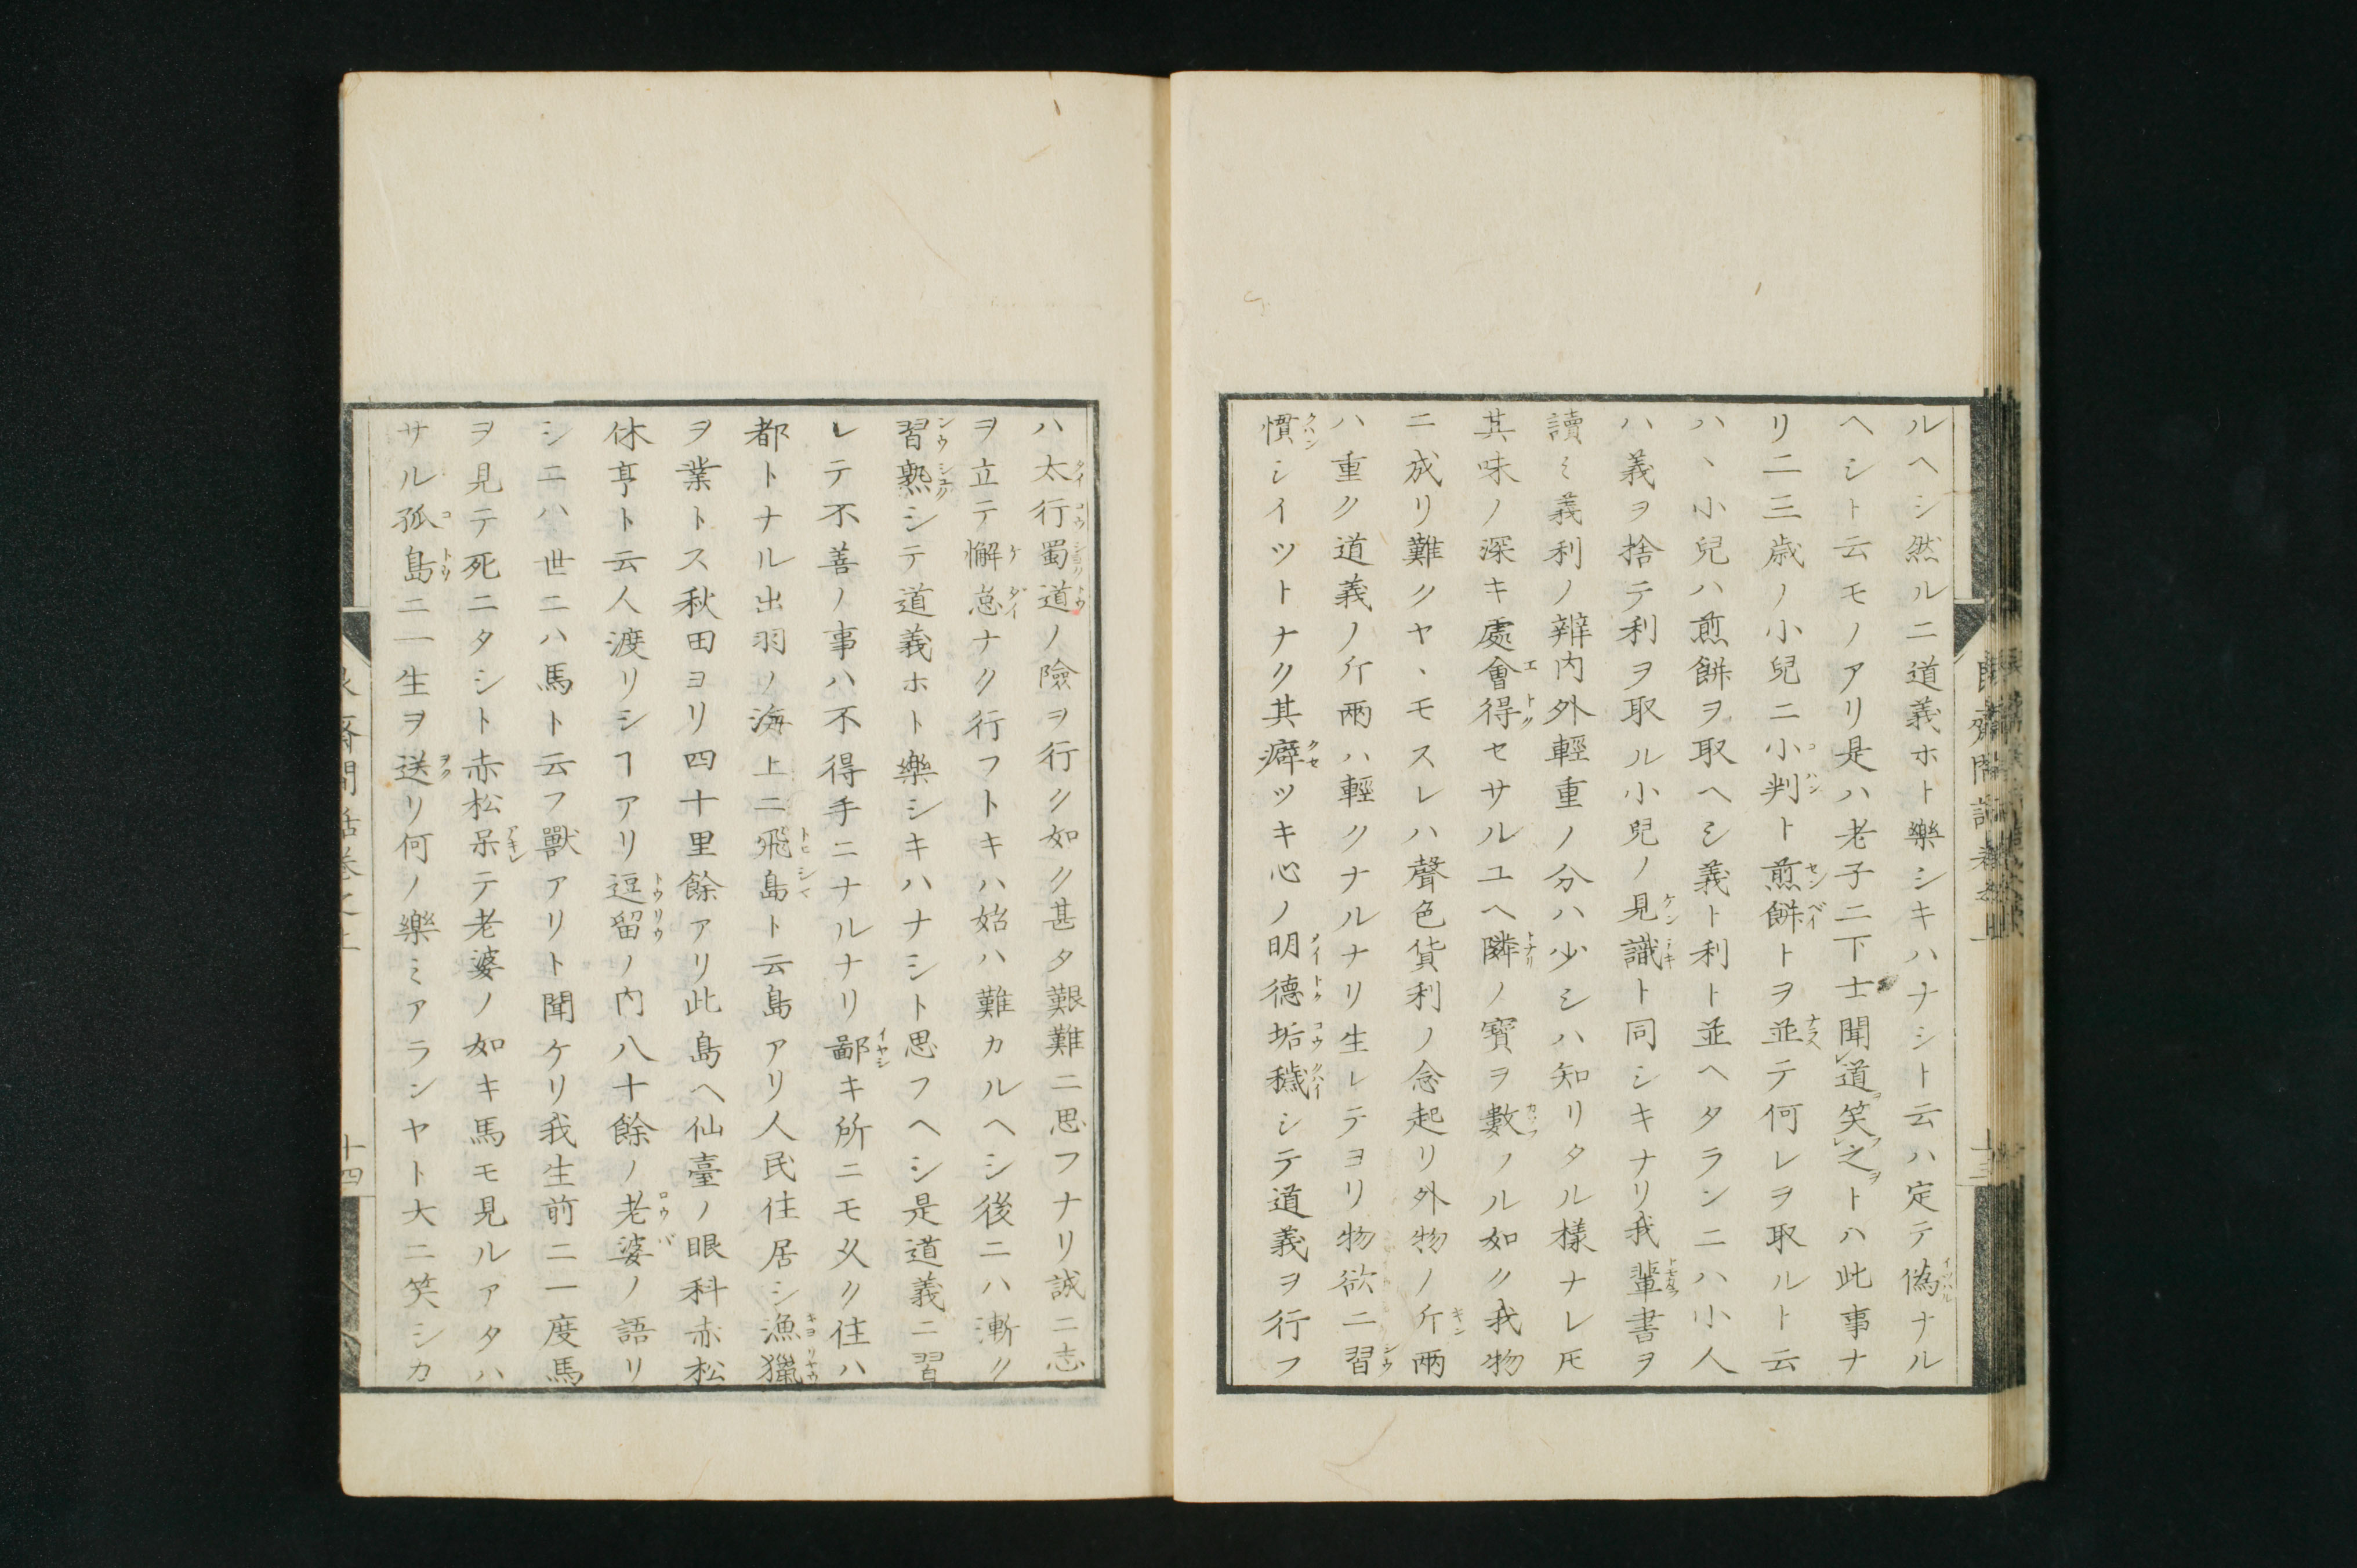 ルヘシ然ルニ道義ホト樂シキハナシト云ハ定テ偽ナル
ヘシト云モノアリ是ハ老子ニ下士聞道笑之トハ此事ナ
リ二三歳ノ小兒ニ小判ト煎餅トヲ並テ何レヲ取ルト云
ハヽ小兒ハ煎餅ヲ取ヘシ義ト利ト並ヘタランニハ小人
ハ義ヲ捨テ利ヲ取ル小兒ノ見識ト同シキナリ我輩書ヲ
讀ミ義利ノ辨内外輕重ノ分ハ少シハ知リタル樣ナレ𪜈
其味ノ深キ處會得セサルユヘ隣ノ寳ヲ數フル如ク我物
ニ成リ難クヤヽモスレハ聲色貨利ノ念起リ外物ノ斤兩
ハ重ク道義ノ斤兩ハ輕クナルナリ生レテヨリ物欲ニ習
慣シイツトナク其癖ツキ心ノ明德垢穢シテ道義ヲ行フ
ハ太行蜀道ノ險ヲ行ク如ク甚タ艱難ニ思フナリ誠ニ志
ヲ立テ懈怠ナク行フトキハ始ハ難カルヘシ後ニハ漸ク
習熟シテ道義ホト樂シキハナシト思フヘシ是道義ニ習
レテ不善ノ事ハ不得手ニナルナリ鄙キ所ニモ久ク住ハ
都トナル出羽ノ海上ニ飛島ト云島アリ人民住居シ漁獵
ヲ業トス秋田ヨリ四十里餘アリ此島ヘ仙臺ノ眼科赤松
休亭ト云人渡リシヿアリ逗留ノ内八十餘ノ老婆ノ語リ
シニハ世ニハ馬ト云フ獸アリト聞ケリ我生前ニ一度馬
ヲ見テ死ニタシト赤松呆テ老婆ノ如キ馬モ見ルアタハ
サル孤島ニ一生ヲ送リ何ノ樂ミアランヤト大ニ笑シカ
十四